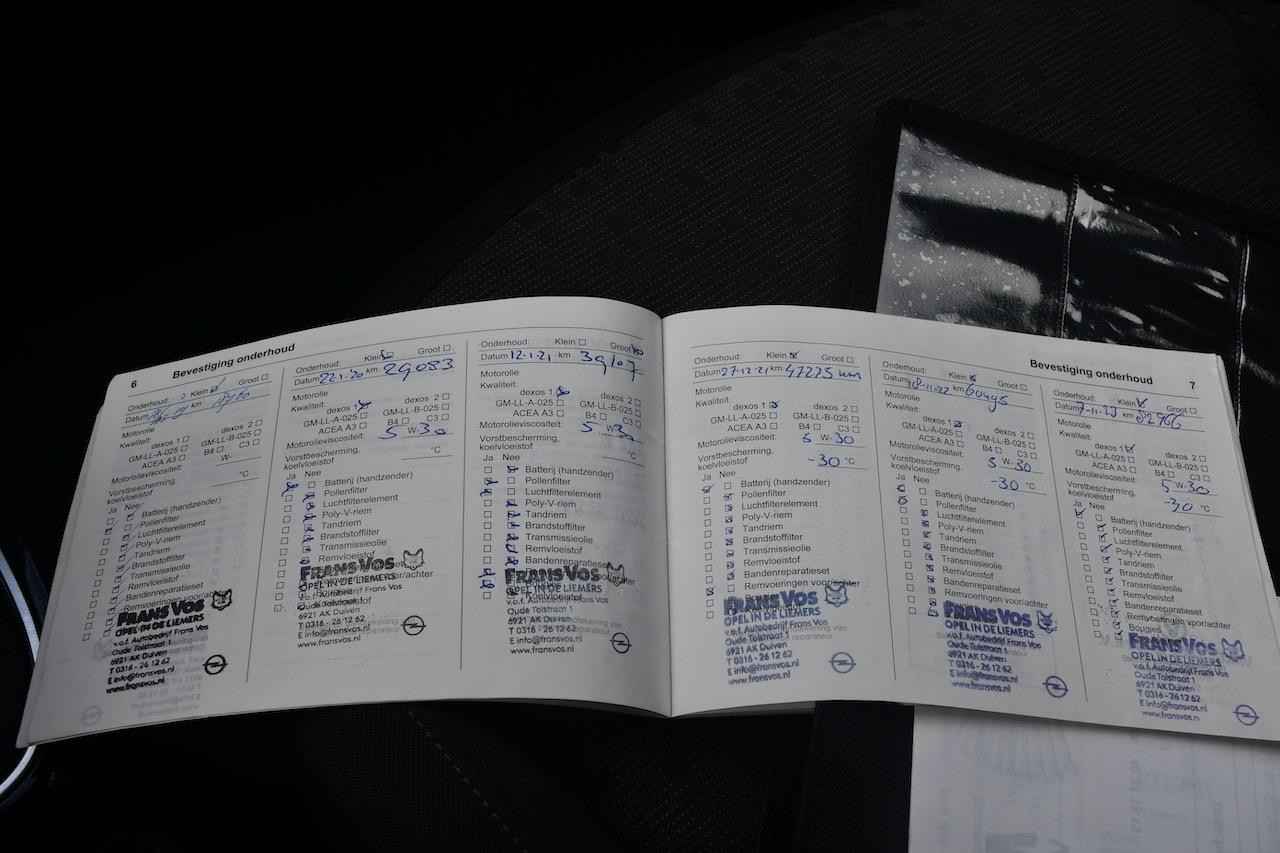 6 Bevestiging onderhoud
Onderhoud: Klein Groot
Datum km
Motorolie
Kwaliteit:
dexos 1 dexos 2
GM-LL-A-025 GM-LL-B-025
ACEA A3 B4 C3
Motorolieviscositeit: W-
Vorstbescherming, koelvloeistof °C
Ja Nee
Batterij (handzender)
Pollenfilter
Luchtfilterelement
Poly-V-riem
Tandriem
Brandstoffilter
Transmissieolie
Remvloeistof
Bandenreparatieset
Remvoeringen voor/achter
FRANS VOS
OPEL IN DE LIEMERS
v.o.f. Autobedrijf Frans Vos
Oude Tolstraat 1
6921 AK Duiven
T 0316 - 26 12 62
E info@fransvos.nl
www.fransvos.nl
Onderhoud: Klein Groot
Datum 22-1-20 km 29083
Motorolie
Kwaliteit:
dexos 1 dexos 2
GM-LL-A-025 GM-LL-B-025
ACEA A3 B4 C3
Motorolieviscositeit: 5 W-30
Vorstbescherming, koelvloeistof °C
Ja Nee
Batterij (handzender)
Pollenfilter
Luchtfilterelement
Poly-V-riem
Tandriem
Brandstoffilter
Transmissieolie
Remvloeistof
FRANS VOS
OPEL IN DE LIEMERS
v.o.f. Autobedrijf Frans Vos
Oude Tolstraat 1
6921 AK Duiven
T 0316 - 26 12 62
E info@fransvos.nl
www.fransvos.nl
Onderhoud: Klein Groot
Datum 12-1-21 km 39107
Motorolie
Kwaliteit:
dexos 1 dexos 2
GM-LL-A-025 GM-LL-B-025
ACEA A3 B4 C3
Motorolieviscositeit: 5 W-30
Vorstbescherming, koelvloeistof °C
Ja Nee
Batterij (handzender)
Pollenfilter
Luchtfilterelement
Poly-V-riem
Tandriem
Brandstoffilter
Transmissieolie
Remvloeistof
Bandenreparatieset
FRANS VOS
OPEL IN DE LIEMERS
v.o.f. Autobedrijf Frans Vos
Oude Tolstraat 1
6921 AK Duiven
T 0316 - 26 12 62
E info@fransvos.nl
www.fransvos.nl
Bevestiging onderhoud 7
Onderhoud: Klein Groot
Datum 27-12-21 km 47225 km
Motorolie
Kwaliteit:
dexos 1 dexos 2
GM-LL-A-025 GM-LL-B-025
ACEA A3 B4 C3
Motorolieviscositeit: 5 W-30
Vorstbescherming, koelvloeistof -30 °C
Ja Nee
Batterij (handzender)
Pollenfilter
Luchtfilterelement
Poly-V-riem
Tandriem
Brandstoffilter
Transmissieolie
Remvloeistof
Bandenreparatieset
Remvoeringen voor/achter
FRANS VOS
OPEL IN DE LIEMERS
v.o.f. Autobedrijf Frans Vos
Oude Tolstraat 1
6921 AK Duiven
T 0316 - 26 12 62
E info@fransvos.nl
www.fransvos.nl
Onderhoud: Klein Groot
Datum km
Motorolie
Kwaliteit:
dexos 1 dexos 2
GM-LL-A-025 GM-LL-B-025
ACEA A3 B4 C3
Motorolieviscositeit: 5 W-30
Vorstbescherming, koelvloeistof -30 °C
Ja Nee
Batterij (handzender)
Pollenfilter
Luchtfilterelement
Poly-V-riem
Tandriem
Brandstoffilter
Transmissieolie
Remvloeistof
Bandenreparatieset
Remvoeringen voor/achter
FRANS VOS
OPEL IN DE LIEMERS
v.o.f. Autobedrijf Frans Vos
Oude Tolstraat 1
6921 AK Duiven
T 0316 - 26 12 62
E info@fransvos.nl
www.fransvos.nl
Onderhoud: Klein Groot
Datum 7-11-23 km 82966
Motorolie
Kwaliteit:
dexos 1 dexos 2
GM-LL-A-025 GM-LL-B-025
ACEA A3 B4 C3
Motorolieviscositeit: 5 W-30
Vorstbescherming, koelvloeistof -30 °C
Ja Nee
Batterij (handzender)
Pollenfilter
Luchtfilterelement
Poly-V-riem
Tandriem
Brandstoffilter
Transmissieolie
Remvloeistof
Bandenreparatieset
Remvoeringen voor/achter
Bougies
FRANS VOS
OPEL IN DE LIEMERS
v.o.f. Autobedrijf Frans Vos
Oude Tolstraat 1
6921 AK Duiven
T 0316 - 26 12 62
E info@fransvos.nl
www.fransvos.nl